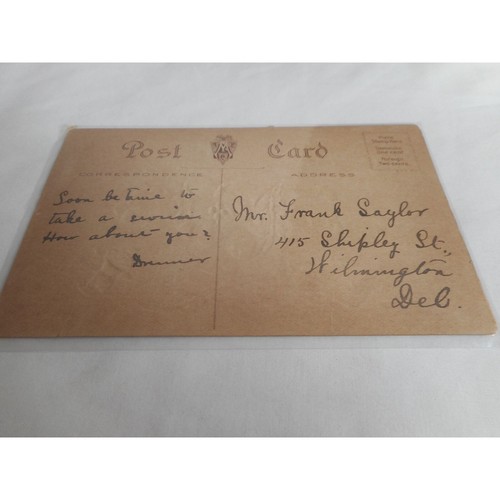 Post Card
CORRESPONDENCE
ADDRESS
Soon be time to
take a swim
How about you?
Mr. Frank Saylor
415 Shipley St.,
Wilmington
Del.